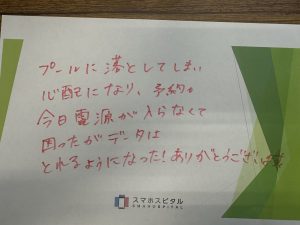 プールに落としてしまい
心配になり、予約も
今日電源が入らなくて
困ったがデータは
とれるようになった!ありがとうございます
スマホスピタル
SMAHOSPITAL